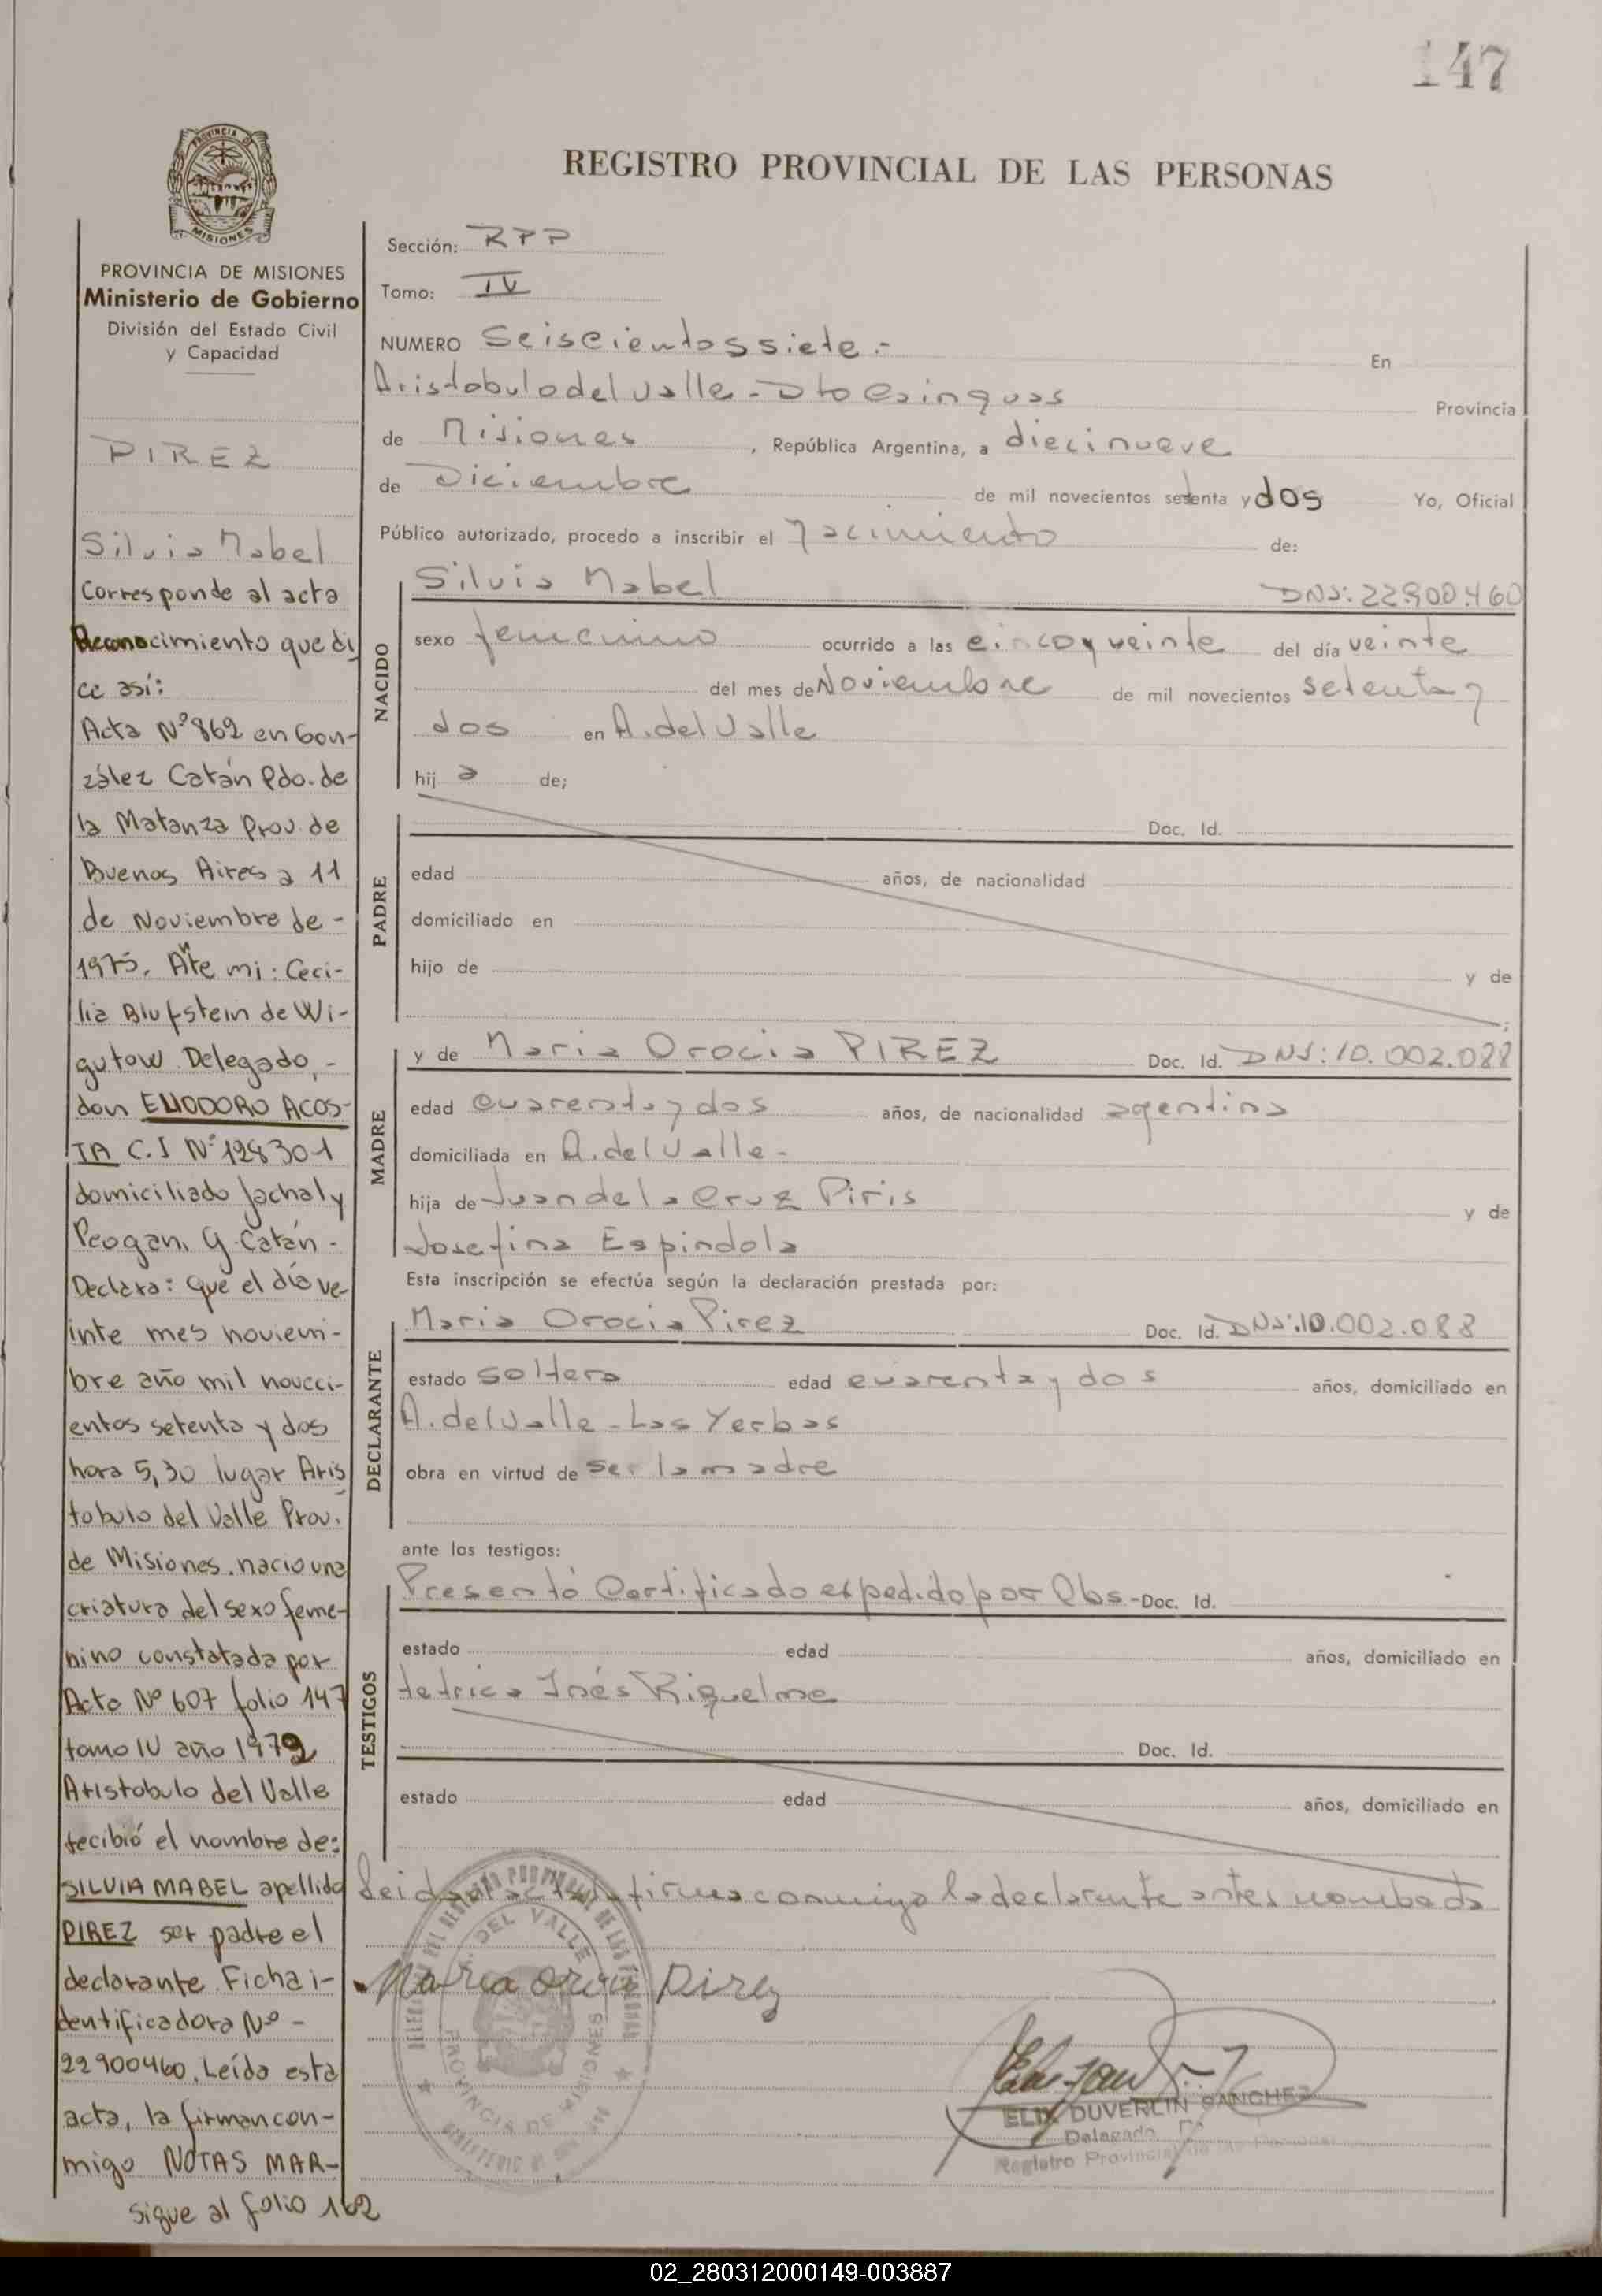 147
PROVINCIA DE
MISIONES
REGISTRO PROVINCIAL DE LAS PERSONAS
PROVINCIA DE MISIONES
Ministerio de Gobierno
División del Estado Civil
y Capacidad
PIREZ
Silvia Mabel
Corresponde al acta
Reconocimiento que di
ce así:
Acta Nº 862 en Gon-
zález Catán Pdo. de
la Matanza Prov. de
Buenos Aires a 11
de Noviembre de -
1975. Ante mi: Ceci-
lia Blufstein de Wi-
gutow Delegado, -
don ELIODORO ACOS-
TA C.I Nº 128301
domiciliado Jachal y
Peogan, G. Catán -
Declara: Que el día ve-
inte mes noviem-
bre año mil noveci-
entos setenta y dos
hora 5,30 lugar Aris
tobulo del Valle Prov.
de Misiones. nacio una
criatura del sexo feme-
nino constatada por
Acta Nº 607 folio 147
tomo IV año 1972
Aristobulo del Valle
recibió el nombre de:
SILVIA MABEL apellido
PIREZ ser padre el
declarante. Ficha i-
dentificadora Nº -
22900460. Leída esta
acta, la firman con-
migo NOTAS MAR-
sigue al folio 162
Sección: RPP
Tomo: IV
NUMERO Seiscientos siete.- En
Aristobulo del Valle - Dto Cainguas Provincia
de Misiones, República Argentina, a diecinueve
de Diciembre de mil novecientos setenta y dos Yo, Oficial
Público autorizado, procedo a inscribir el Nacimiento de:
NACIDO
Silvia Mabel DNI: 22.900.460
sexo femenino ocurrido a las cinco y veinte del día veinte
del mes de Noviembre de mil novecientos setenta y
dos en A. del Valle
hij a de;
PADRE
Doc. Id.
edad años, de nacionalidad
domiciliado en
hijo de y de
;
MADRE
y de Maria Orocia PIREZ Doc. Id. DNI: 10.002.088
edad cuarenta y dos años, de nacionalidad agentina
domiciliada en A. del Valle -
hija de Juan de la Cruz Piris y de
Josefina Espindola
Esta inscripción se efectúa según la declaración prestada por:
DECLARANTE
Maria Orocia Pirez Doc. Id. DNI: 10.002.088
estado soltera edad cuarenta y dos años, domiciliado en
A. del Valle - Las Yerbas
obra en virtud de ser la madre
ante los testigos:
TESTIGOS
Presentó Certificado expedido por Obs- Doc. Id.
estado edad años, domiciliado en
tetrica Inés Riquelme
Doc. Id.
estado edad años, domiciliado en
Leida el acta la firma conmigo la declarante antes nombada
Maria Orocia Pirez
DEL VALLE
PROVINCIA DE MISIONES
ELIX DUVERLIN SANCHEZ
Delegado
Registro Provincial de las Personas
02_280312000149-003887